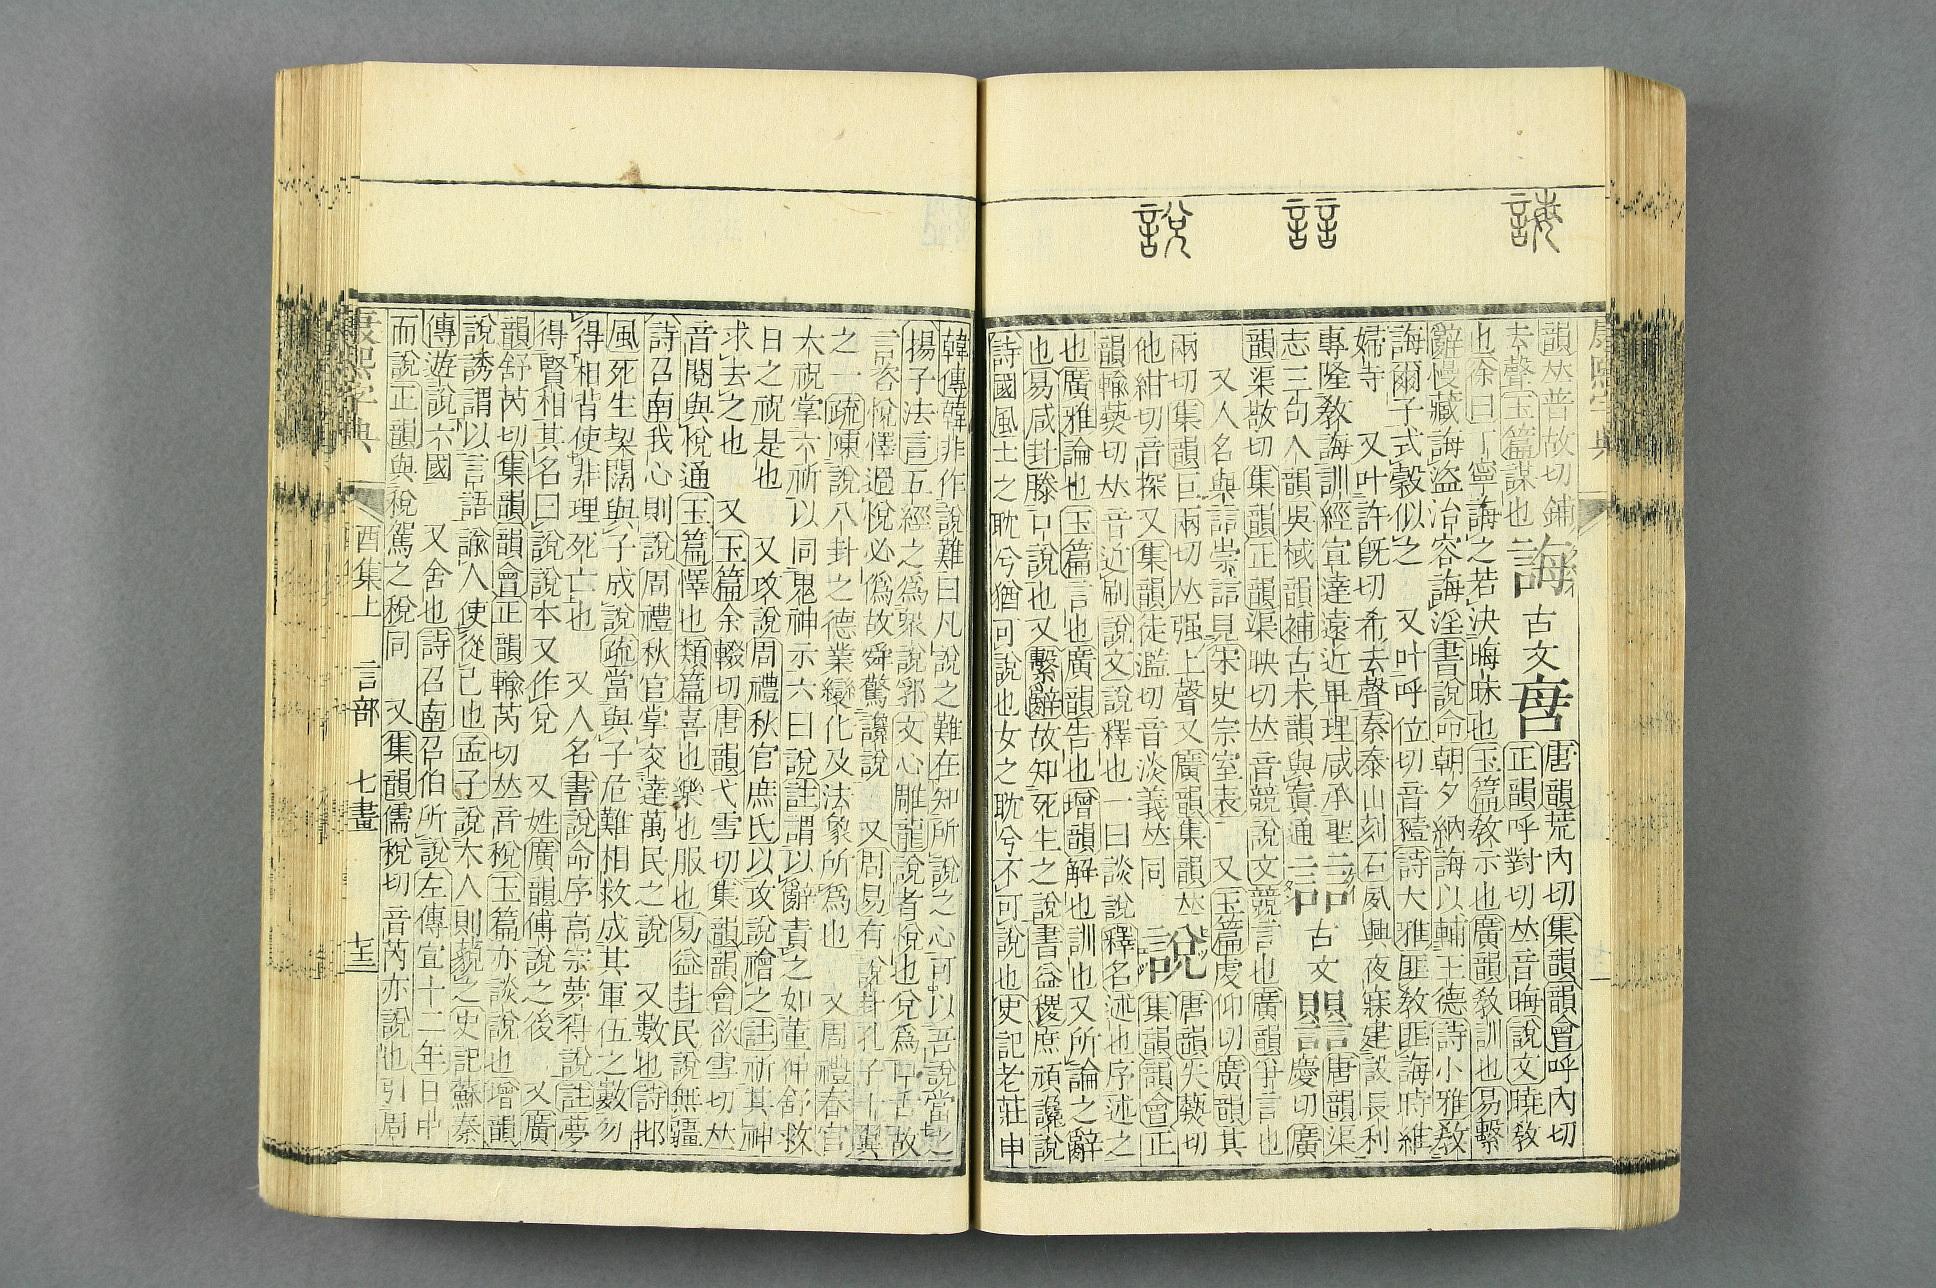 誨
誩
說
康熙字典
韻𠀤普故切鋪去聲玉篇謀也
誨
古文𧧝
唐韻荒內切集韻韻會呼內切正韻呼對切𠀤音晦說文曉敎
也徐曰丁寧誨之若決晦昧也玉篇敎示也廣韻敎訓也易繫
辭慢藏誨盜治容誨淫書說命朝夕納誨以輔王德詩小雅敎
誨爾子式穀似之 又叶呼位切音豷詩大雅匪敎匪誨時維
婦寺 又叶許旣切希去聲秦泰山刻石夙興夜寐建設長利
專隆敎誨訓經宣達遠近畢理咸承聖志
誩
古文
唐韻渠慶切廣
韻渠敬切集韻正韻渠映切𠀤音競說文競言也廣韻爭言也
又人名與誩崇誩見宋史宗室表 又玉篇虔仰切廣韻其
兩切集韻巨兩切𠀤强上聲又廣韻集韻𠀤
他紺切音探又集韻徒濫切音淡義𠀤同
說
唐韻失爇切集韻韻會正
韻輸爇切𠀤音近刷說文說釋也一曰談說釋名述也序述之
也廣雅論也玉篇言也廣韻告也增韻解也訓也又所論之辭
也易咸卦滕口說也又繫辭故知死生之說書益稷庶頑讒說
詩國風士之耽兮猶可說也女之耽兮不可說也史記老莊申
韓傳韓非作說難曰凡說之難在知所說之心可以吾說當之
揚子法言五經之爲衆說郛文心雕龍說者悅也兌爲口舌故
言咨悅懌過悅必僞故舜驚讒說 又周易有說卦孔子十翼
之一疏陳說八卦之德業變化及法象所爲也 又周禮春官
大祝掌六祈以同鬼神示六曰說註謂以辭責之如董仲舒救
日之祝是也 又攻說周禮秋官庶氏以攻說禬之註祈其神
求去之也 又玉篇余輟切唐韻弋雪切集韻韻會欲雪切𠀤
音閱與悅通玉篇懌也類篇喜也樂也服也易益卦民說無疆
詩召南我心則說周禮秋官掌交達萬民之說 又數也詩邶
風死生契闊與子成說疏當與子危難相救成其軍伍之數勿
得相背使非理死亡也 又人名書說命序高宗夢得說註夢
得賢相其名曰說說本又作兌 又姓廣韻傅說之後 又廣
韻舒芮切集韻韻會正韻輸芮切𠀤音稅玉篇亦談說也增韻
說誘謂以言語諭人使從己也孟子說大人則藐之史記蘇秦
傳遊說六國 又舍也詩召南召伯所說左傳宣十二年日中
而說正韻與稅駕之稅同 又集韻儒稅切音芮亦說也引周
康熙字典 酉集上 言部 七畫 十三